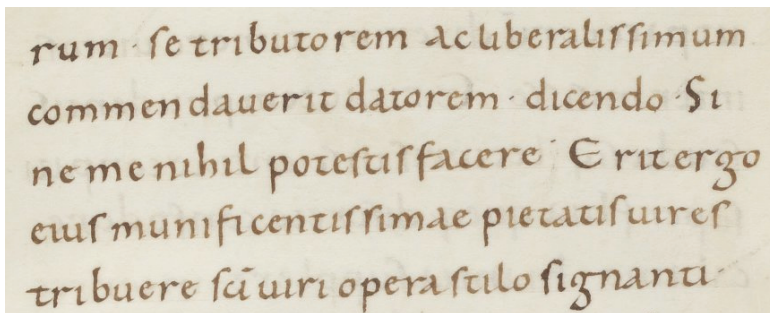 rum · se tributorem ac liberalissimum
commendauerit datorem · dicendo · Si
ne me nihil potestis facere · Erit ergo
eius munificentissimae pietatis uires
tribuere sci̅ uiri opera stilo signanti ·